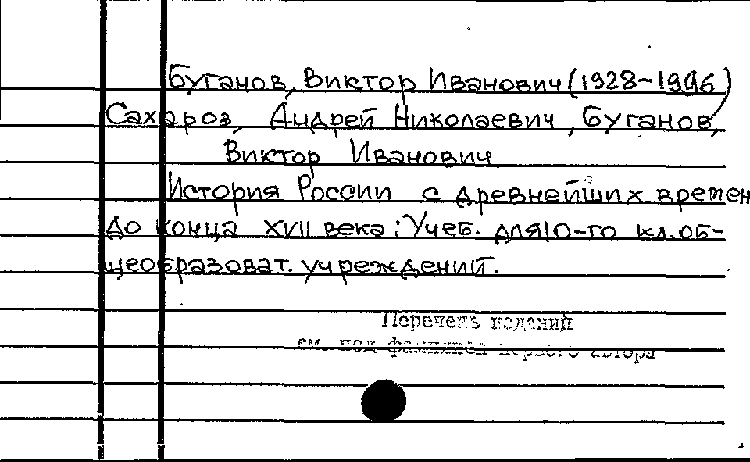 Буганов, Виктор Иванович (1928-1996)
Сахаров, Андрей Николаевич, Буганов,
Виктор Иванович
История России с древнейших времен
до конца XVII века: Учеб. для 10-го кл. об-
щеобразоват. учреждений.
Перечень изданий
см. под фамилией первого автора